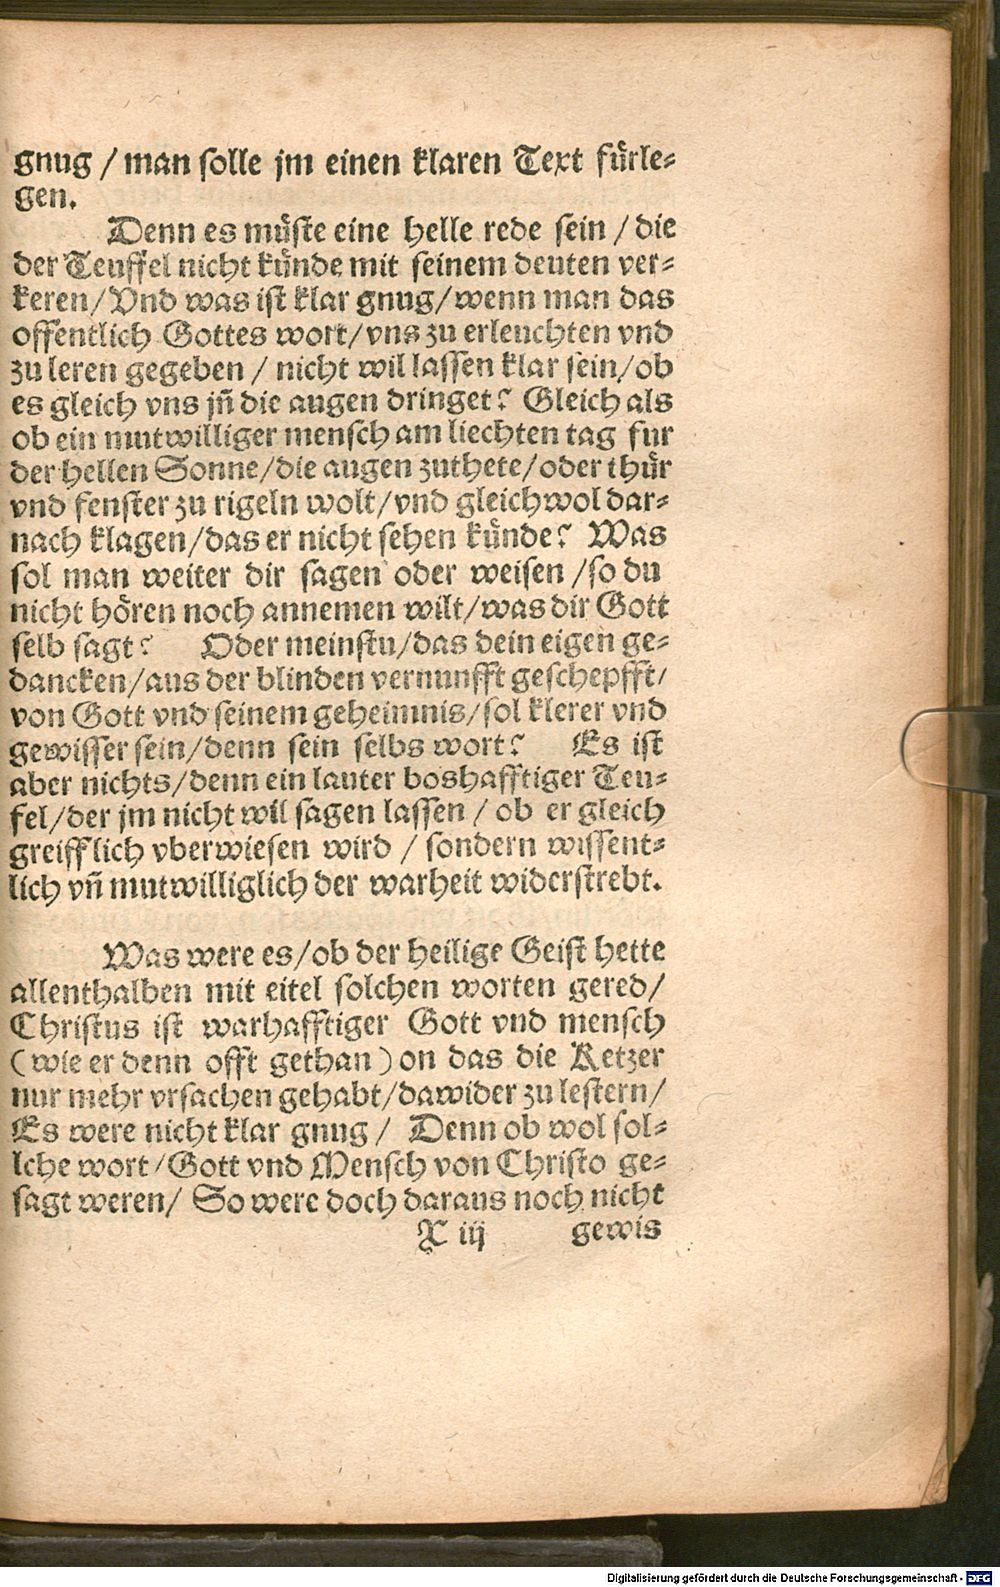 gnug / man solle jm einen klaren Text fürle⸗
gen.
Denn es müste eine helle rede sein / die
der Teuffel nicht künde mit seinem deuten ver⸗
keren / Vnd was ist klar gnug / wenn man das
offentlich Gottes wort / vns zu erleuchten vnd
zu leren gegeben / nicht wil lassen klar sein / ob
es gleich vns jn̄ die augen dringet? Gleich als
ob ein mutwilliger mensch am liechten tag fur
der hellen Sonne / die augen zuthete / oder thür
vnd fenster zu rigeln wolt / vnd gleichwol dar⸗
nach klagen / das er nicht sehen künde? Was
sol man weiter dir sagen oder weisen / so du
nicht hören noch annemen wilt / was dir Gott
selb sagt? Oder meinstu / das dein eigen ge⸗
dancken / aus der blinden vernunfft geschepfft /
von Gott vnd seinem geheimnis / sol klerer vnd
gewisser sein / denn sein selbs wort? Es ist
aber nichts / denn ein lauter boshafftiger Teu⸗
fel / der jm nicht wil sagen lassen / ob er gleich
greifflich vberwiesen wird / sondern wissent⸗
lich vn̄ mutwilliglich der warheit widerstrebt.
Was were es / ob der heilige Geist hette
allenthalben mit eitel solchen worten gered /
Christus ist warhafftiger Gott vnd mensch
( wie er denn offt gethan ) on das die Ketzer
nur mehr vrsachen gehabt / dawider zu lestern /
Es were nicht klar gnug / Denn ob wol sol⸗
lche wort / Gott vnd Mensch von Christo ge⸗
sagt weren / So were doch daraus noch nicht
X iij gewis
Digitalisierung gefördert durch die Deutsche Forschungsgemeinschaft - DFG